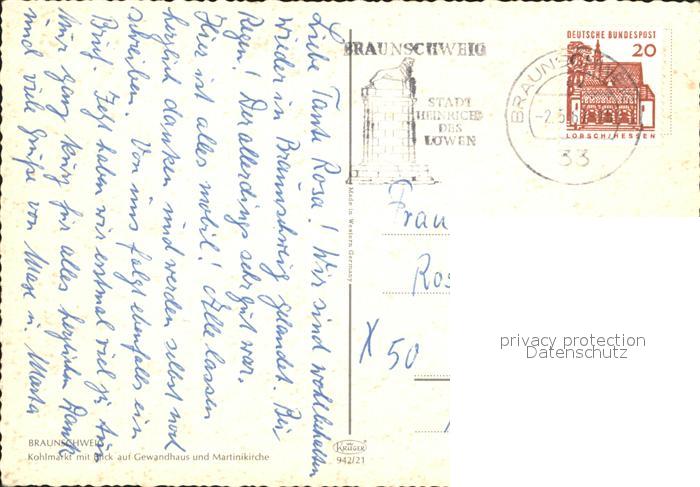 Liebe Tante Rosa! Wir sind wohlbehalten
wieder in Braunschweig gelandet. Bei
Regen! Der allerdings sehr gut war.
Hier ist alles mobil! Alle lassen
herzlich danken und werden selbst noch
schreiben. Von uns folgt ebenfalls ein
Brief. Jetzt haben wir erstmal viel zu tun.
Nur ganz kurz für alles herzlichen Dank
und viele Grüße von Maxe u. Marta
BRAUNSCHWEIG
Kohlmarkt mit Blick auf Gewandhaus und Martinikirche
BRAUNSCHWEIG
STADT
HEINRICHS
DES
LÖWEN
BRAUNSCHWEIG
-2.5.
33
DEUTSCHE BUNDESPOST
20
LORSCH/HESSEN
Made in Western Germany
KRÜGER
942/21
Frau
Ros
X 50
privacy protection
Datenschutz